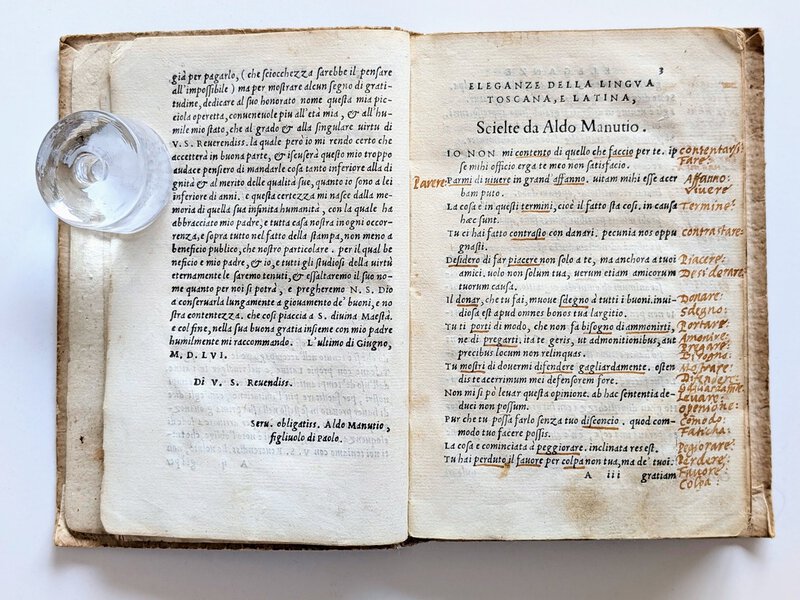 già per pagarlo, (che sciocchezza sarebbe il pensare
all'impossibile) ma per mostrare alcun segno di grati-
tudine, dedicare al suo honorato nome questa mia pic-
ciola operetta, conueneuole piu all'età mia, & all'hu-
mile mio stato, che al grado & alla singulare uirtu di
V. S. Reuerendiss. la quale però io mi rendo certo che
accetterà in buona parte, & iscuserà questo mio troppo
audace pensiero di mandarle cosa tanto inferiore alla di
gnità & al merito delle qualità sue, quanto io sono a lei
inferiore di anni. e questa certezza mi nasce dalla me-
moria di quella sua infinita humanità, con la quale ha
abbracciato mio padre, e tutta casa nostra in ogni occor-
renza, e sopra tutto nel fatto della stampa, non meno a
beneficio publico, che nostro particolare. per il qual be
neficio e mio padre, & io, e tutti gli studiosi della uirtù
eternamente le saremo tenuti, & essaltaremo il suo no-
me quanto per noi si potrà, e pregheremo N. S. Dio
a conseruarla lungamente a giouamento de' buoni, e no
stra contentezza. che cosi piaccia a S. diuina Maestà.
e col fine, nella sua buona gratia insieme con mio padre
humilmente mi raccommando. L'ultimo di Giugno,
M. D. LVI.
Di V. S. Reuendiss.
Seru. obligatiss. Aldo Manutio,
figliuolo di Paolo.
3
ELEGANZE DELLA LINGVA
TOSCANA, E LATINA,
Scielte da Aldo Manutio.
IO NON mi contento di quello che faccio per te. ip contentarsi:
se mihi officio erga te meo non satisfacio. Fare:
Parere: Parmi di uiuere in grand'affanno. uitam mihi esse acer Affanno:
bam puto. Vivere
La cosa è in questi termini, cioè il fatto sta cosi. in causa Termine:
hæc sunt.
Tu ci hai fatto contrasto con danari. pecunia nos oppu contrastare:
gnasti.
Desidero di far piacere non solo a te, ma anchora a tuoi Piacere:
amici. uolo non solum tua, uerum etiam amicorum Desiderare:
tuorum causa.
Il donar, che tu fai, muoue sdegno à tutti i buoni. inui Donare:
diosa est apud omnes bonos tua largitio. Sdegno:
Tu ti porti di modo, che non fa bisogno di ammonirti, Portare:
ne di pregarti. ita te geris, ut admonitionibus, aut Amonire:
precibus locum non relinquas. Pregare:
Bisogno:
Tu mostri di douermi difendere gagliardamente. osten Mostrare:
dis te acerrimum mei defensorem fore. Difendere:
Non mi si pò leuar questa opinione. ab hac sententia de- Levare:
duci non possum. openione:
Pur che tu possa farlo senza tuo disconcio. quod com- Comodo:
modo tuo facere possis. Faticha:
La cosa e cominciata à peggiorare. inclinata res est. pegiorare:
Tu hai perduto il fauore per colpa non tua, ma de' tuoi. Perdere:
A iii gratiam Favore:
Colpa: